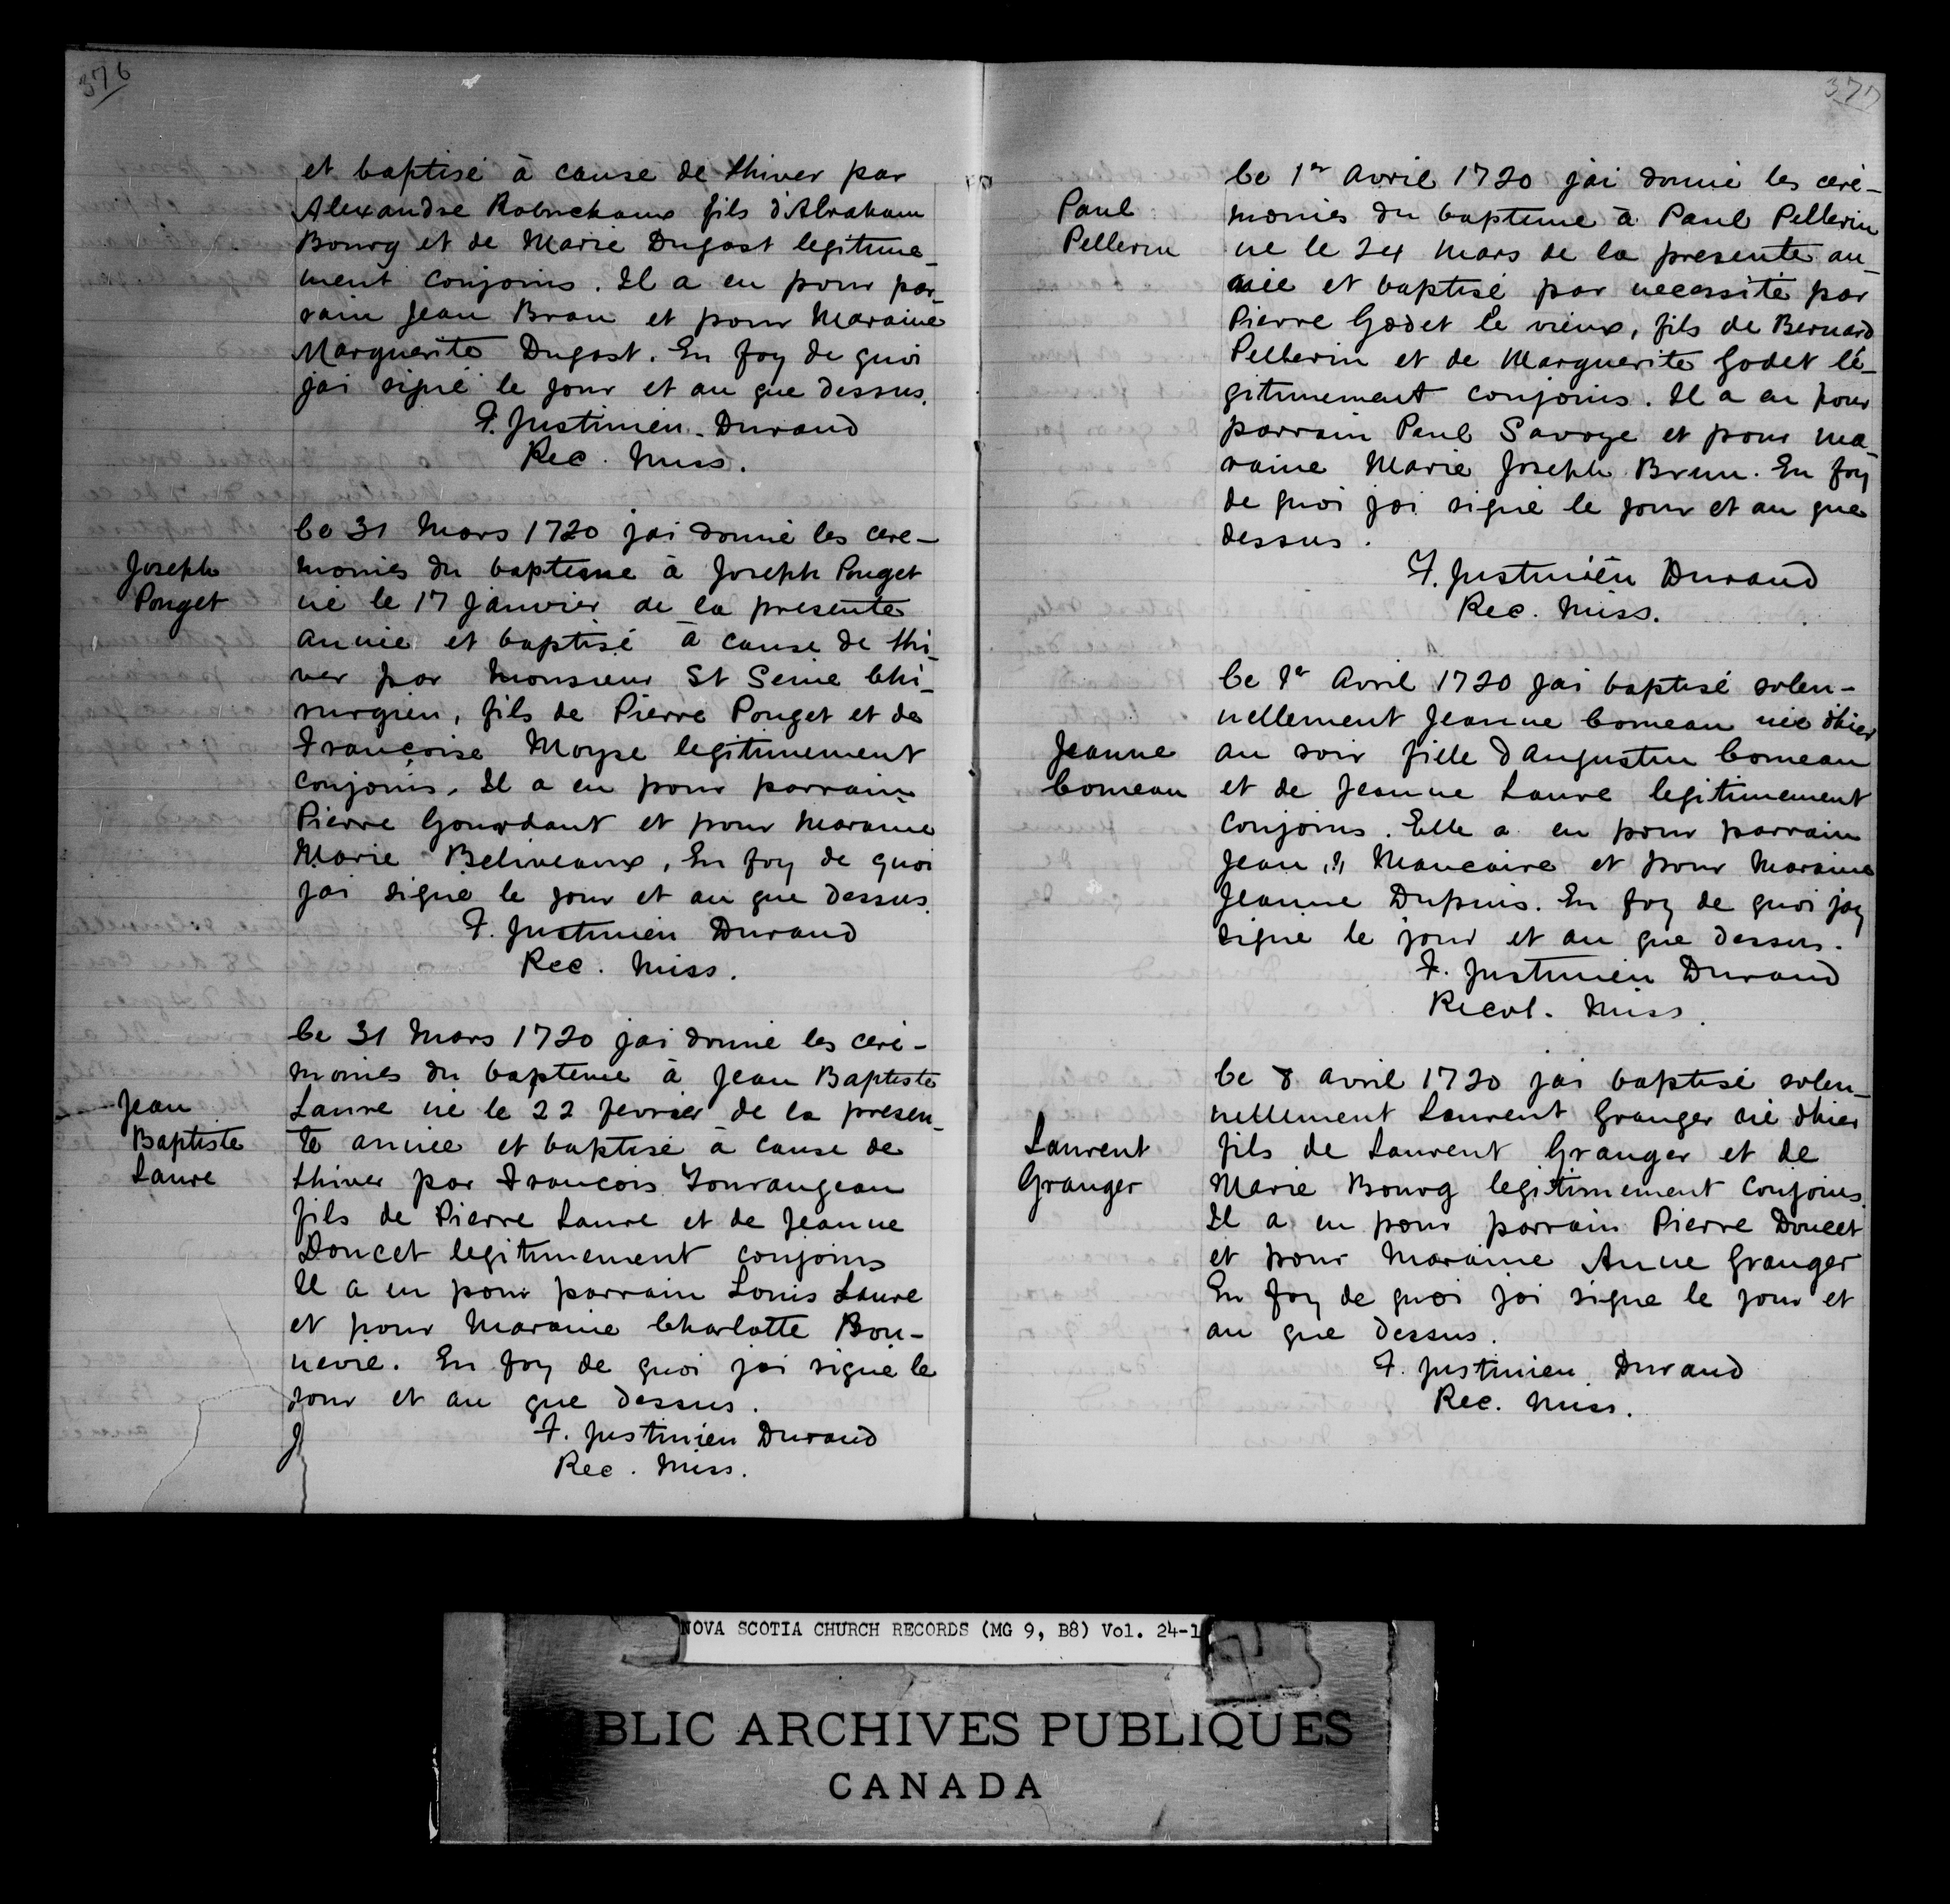 376
et baptisé à cause de lhiver par
Alexandre Robuchaux fils d'Abraham
Bourg et de Marie Dugast legitime-
ment conjoins. Il a eu pour par-
rain Jean Brau et pour Maraine
Marguerite Dugast. En foy de quoi
jai signé le jour et an que dessus.
F. Justinien Durand
Rec. Miss.
Joseph
Pouget
Le 31 Mars 1720 jai donné les cere-
monies du bapteme à Joseph Pouget
né le 17 Janvier de la presente
année et baptisé à cause de lhi-
ver par Monsieur St Seine Chi-
rurgien, fils de Pierre Pouget et de
Françoise Moyse legitimement
conjoins. Il a eu pour parrain
Pierre Gourdant et pour Maraine
Marie Beliveaux, En foy de quoi
jai signé le jour et an que dessus.
F. Justinien Durand
Rec. Miss.
Jean
Baptiste
Laure
Le 31 Mars 1720 jai donné les céré-
monies du bapteme à Jean Baptiste
Laure né le 22 fevrier de la presen-
te année et baptisé à cause de
lhiver par Francois Tourangeau
fils de Pierre Laure et de Jeanne
Doucet legitimement conjoins
Il a eu pour parrain Louis Laure
et pour Maraine Charlotte Bon-
nevie. En foy de quoi jai signé le
jour et an que dessus.
F. Justinien Durand
Rec. Miss.
377
Paul
Pellerin
Le 1er Avril 1720 jai donné les céré-
monies du bapteme à Paul Pellerin
né le 24 Mars de la presente an-
née et baptisé par necessité par
Pierre Godet le vieux, fils de Bernard
Pellerin et de Marguerite Godet lé-
gitimement conjoins. Il a eu pour
parrain Paul Savoye et pour ma-
raine Marie Joseph Brun. En foy
de quoi jai signé le jour et an que
dessus.
F. Justinien Durand
Rec. Miss.
Jeanne
Comeau
Le 1er Avril 1720 jai baptisé solen-
nellement Jeanne Comeau née dhier
au soir fille d'Augustin Comeau
et de Jeanne Laure legitimement
conjoins. Elle a eu pour parrain
Jean Maucaire et pour Maraine
Jeanne Dupuis. En foy de quoi jay
signé le jour et an que dessus.
F. Justinien Durand
Recol. Miss.
Laurent
Granger
Le 8 avril 1720 jai baptisé solen-
nellement Laurent Granger né dhier
fils de Laurent Granger et de
Marie Bourg legitimement conjoins.
Il a eu pour parrain Pierre Doucet
et pour Maraine Anne Granger
En foy de quoi jai signé le jour et
an que dessus.
F. Justinien Durand
Rec. Miss.
NOVA SCOTIA CHURCH RECORDS (MG 9, B8) Vol. 24-1
BLIC ARCHIVES PUBLIQUES
CANADA